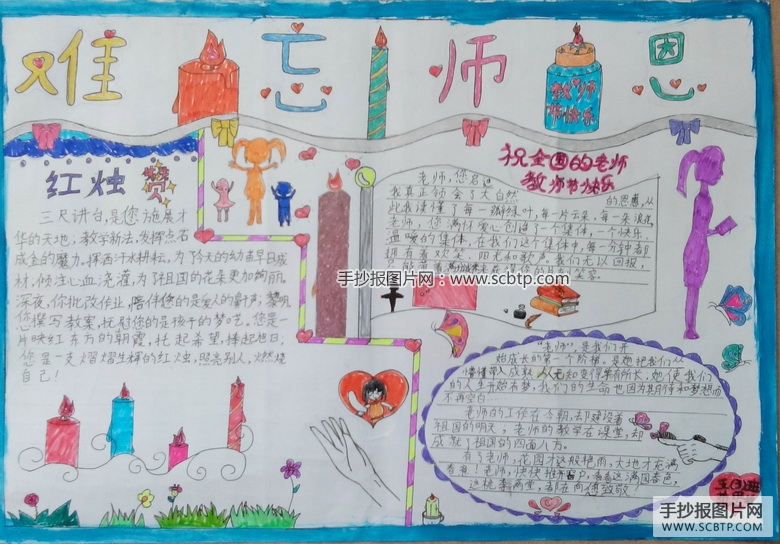 难忘师恩
教师
节快乐
红烛赞
三尺讲台,是您施展才
华的天地;教学新法,发挥点石
成金的魔力。挥洒汗水耕耘,为了今天的幼苗早日成
材,倾注心血浇灌,为了祖国的花朵更加绚丽。
深夜,你批改作业,陪伴您的是爱人的鼾声;黎明,
您撰写教案,托慰您的是孩子的梦呓。您是一
片映红东方的朝霞,托起希望,捧起旭日;
您是一支熠熠生辉的红烛,照亮别人,燃烧
自己!
祝全国的老师
教师节快乐
老师,您启迪
我真正领会了大自然的恩惠,从
此我读懂了每一瓣绿叶,每一片云朵,每一朵浪花。
老师,您满材爱心创造了一个集体,一个快乐
血暖的集体,在我们这个集体中,每一分钟都
拥有着欢乐、阳光和歌声,我们无以回报,
笑容
手抄报图片网
www.scbtp.com
“老师”,是我们开
始成长的第一个阶梯,是她把我们从
懵懂带入成熟,从无知变得掌有所长,她使我们
的人生开始有梦,我们的生命也因为期待和梦想而
不再空白…
老师的工作在今朝,却建设着
祖国的明天;老师的教学在课堂,却
成就了祖国的四面八方。
有了老师,花园才这般艳雨,大地才充满
春意!老师,快快推开窗户,看看这满园春色,
这桃李满堂,都在向您致敬!
五(3)班
手抄报图片网
WWW.SCBTP.COM